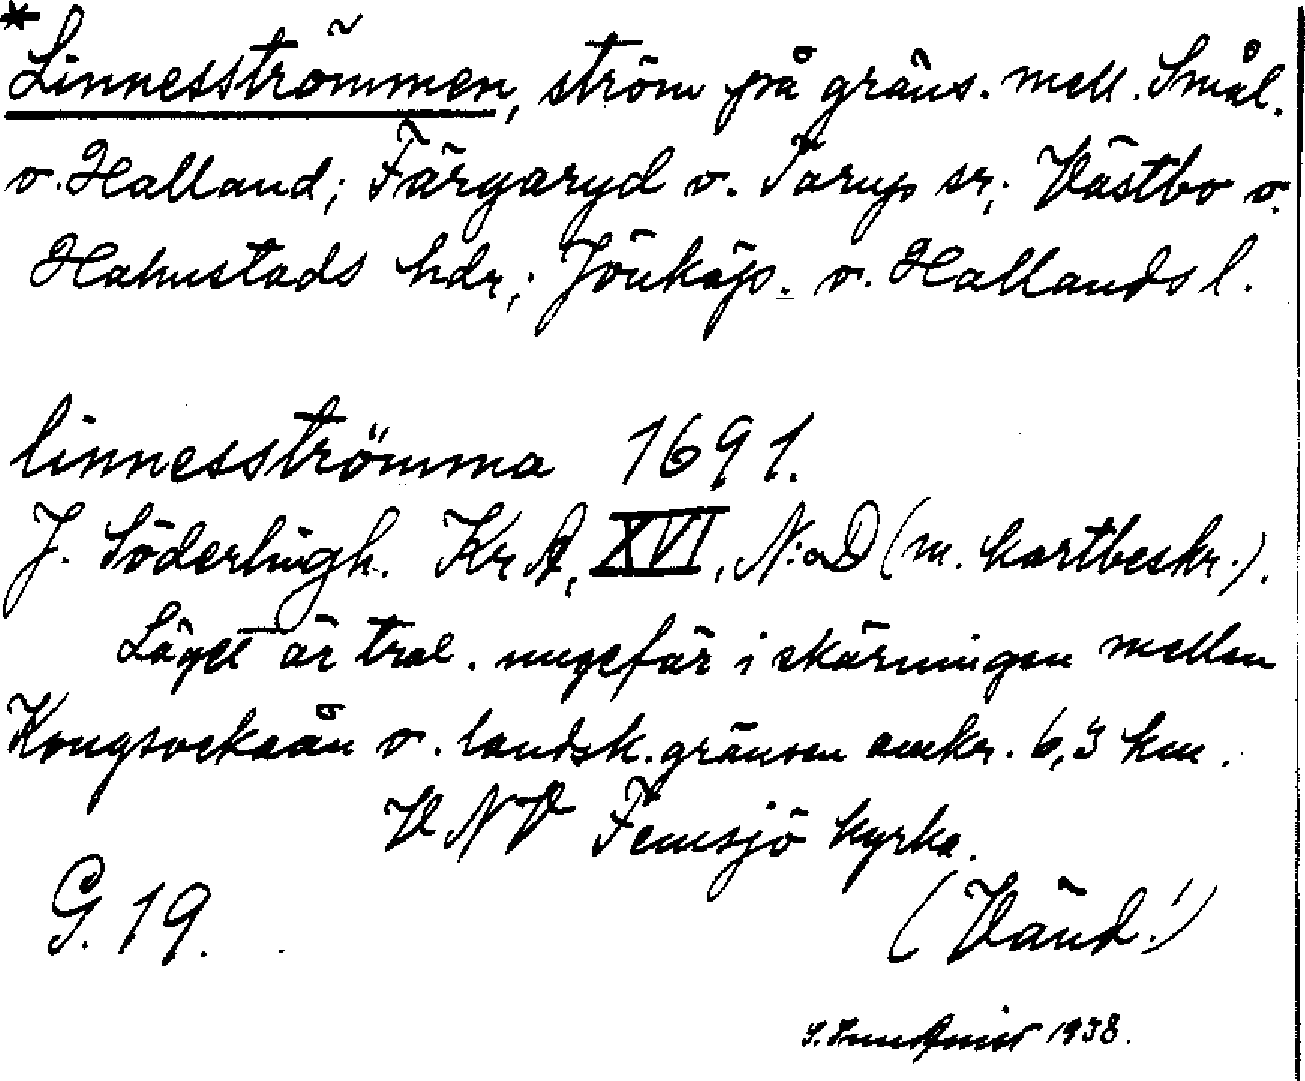 *Linnesströmmen, ström på gräns. mell. Smål.
o. Halland; Färgaryd o. Torup sr; Västbo o.
Halmstads hdr; Jönköp. o. Hallands l.
linnesströmma 1691.
J. Söderlingh. KrA, XVI, N:o D (m. kartbeskr.).
Läget är trol. ungefär i skärningen mellan
Kongsveksån o. landsk.gränsen omkr. 6,3 km.
VNV Femsjö kyrka.
G. 19.
(Vänd!)
1938.